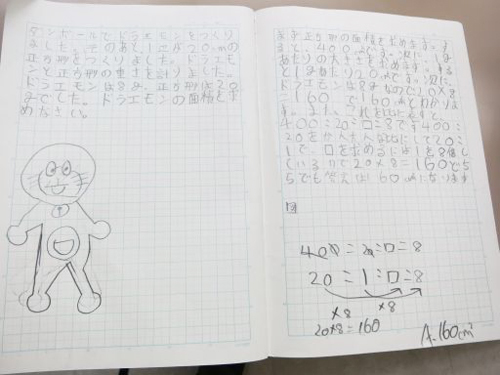 ダンボールでドラエモンをつくり
ました。そのあと1辺が20cmの
正方形をつくりました。ドラエモ
ンと正方形の重さを計りました。
ドラエモンは8g、正方形は20
gでした。ドラエモンの面積を求
めなさい。
正方形の面積を求めます。す
ると、400
あたりの大きさを求めます。する
と1gあたり20
ドラエモンは8gなので20×8
=160で160
す。また、これを比で表すと、
400:20=□:8です。400:
20をかんたんな比にして20:
1で、□を求めるには1を8倍し
ているので20×8=160でち
らでも答えは160cm²になります
図
400:20=□:8
20:1=□:8
×8 ×8
20×8=160
A.160cm²